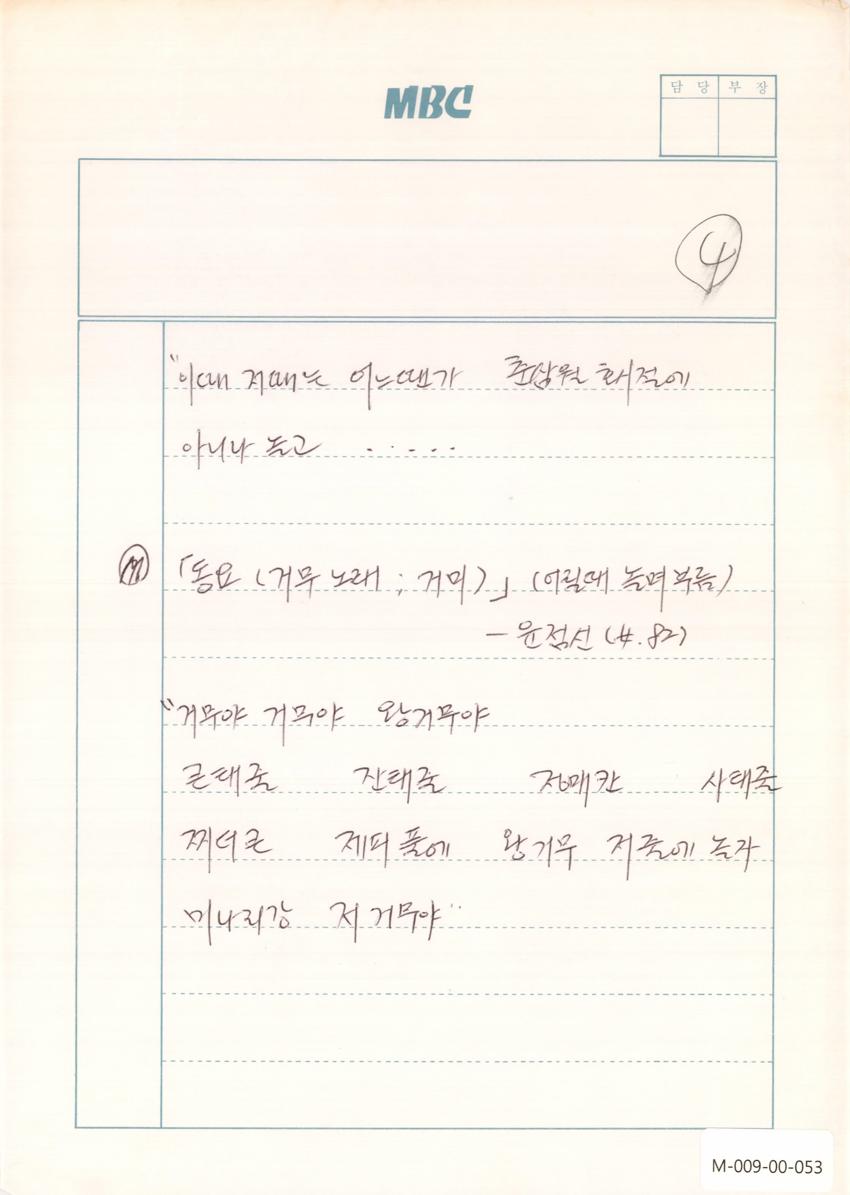 MBC
담 당 부 장
4
"이때 저때는 어느땐가 춘삼월 호시절에
아니나 놀고 . . . . .
M 「동요 (거무 노래 ; 거미)」 (어릴때 놀며부름)
— 윤점선 (女. 82)
"거무야 거무야 왕거무야
큰태줄 잔태줄 사태줄
찌석은 제피풀에 왕거무 저줄에 놀자
미나리강 저 거무야"
M-009-00-053